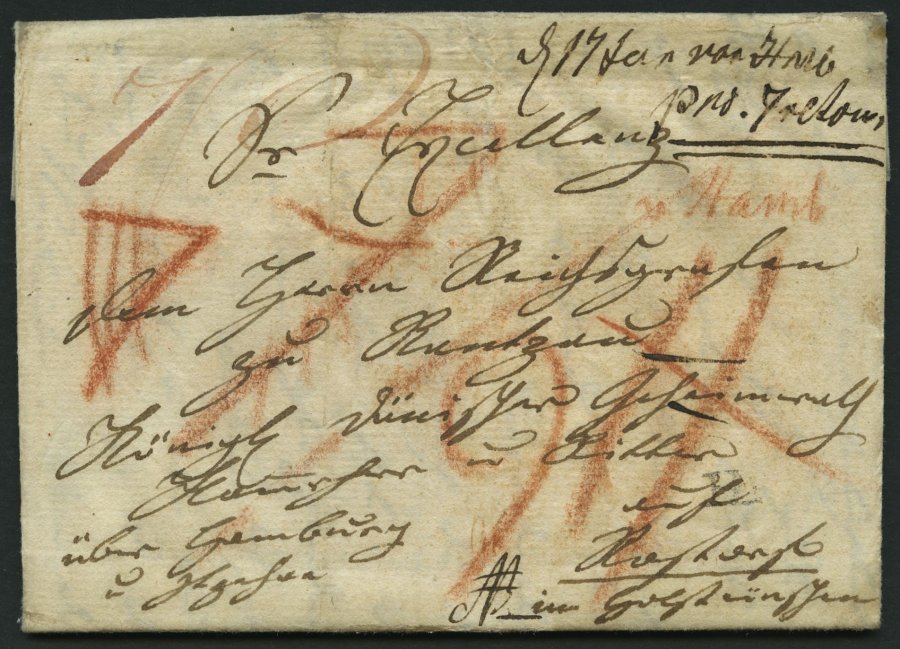 d 17 Jan von Hmb
pro.
Sr Excellenz
Hamb
dem Herrn Reichsgrafen
zu Rantzau
Königl dänischer Geheimrath
Kammerherr u Ritter
auf
über Hamburg
Rastorf
u Itzehoe
im Holsteinischen